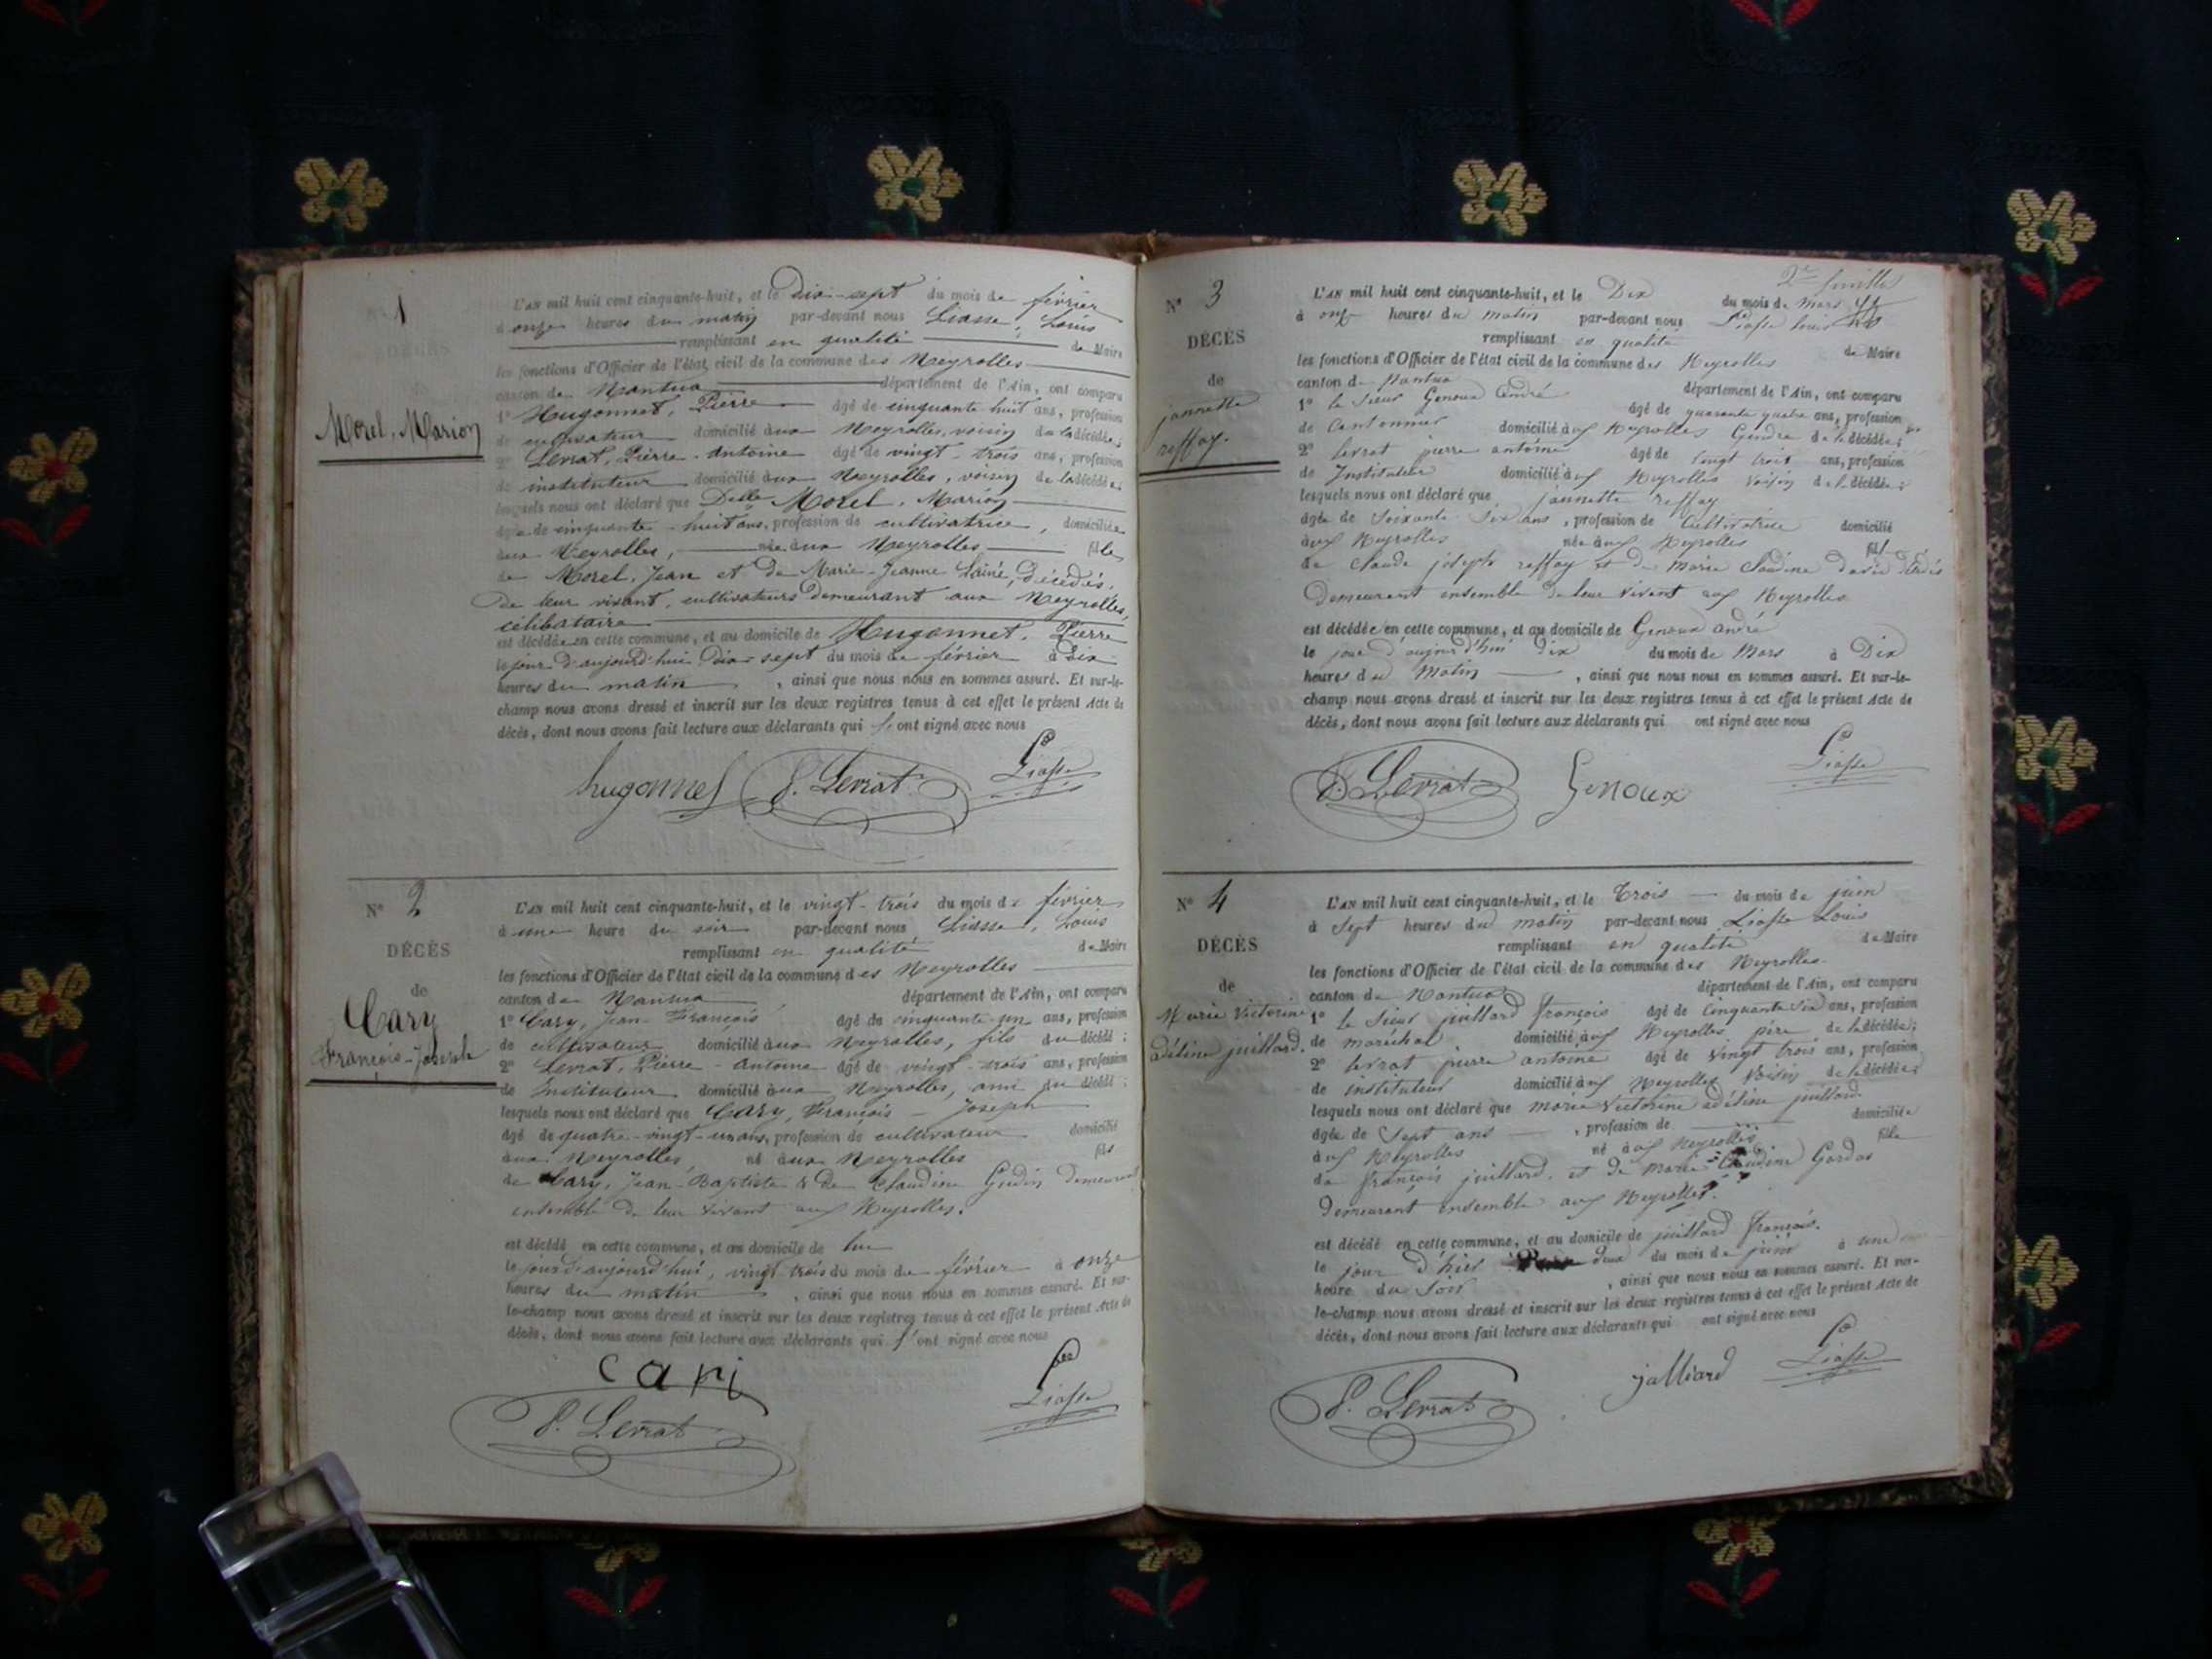 N° 1
DÉCÈS
de
Morel, Marion
L'AN mil huit cent cinquante-huit, et le Dix-sept du mois de février
à onze heures du matin par-devant nous Liasse, Louis
remplissant en qualité de Maire
les fonctions d'Officier de l'état civil de la commune des Neyrolles
canton de Nantua département de l'Ain, ont comparu
1° Hugonnet, Pierre âgé de cinquante huit ans, profession
de cultivateur domicilié aux Neyrolles, voisin de la décédée;
2° Levrat, Pierre-Antoine âgé de vingt-trois ans, profession
de instituteur domicilié aux Neyrolles, voisin de la décédée;
lesquels nous ont déclaré que Delle Morel, Marion
âgée de cinquante-huit ans, profession de cultivatrice, domiciliée
aux Neyrolles, née aux Neyrolles fille
de Morel, Jean et de Marie-Jeanne Lainé, décédés,
de leur vivant, cultivateurs demeurant aux Neyrolles,
célibataire
est décédée en cette commune, et au domicile de Hugonnet, Pierre
le jour d'aujourd'hui Dix-sept du mois de février à Dix
heures du matin, ainsi que nous nous en sommes assuré. Et sur-le-
champ nous avons dressé et inscrit sur les deux registres tenus à cet effet le présent Acte de
décès, dont nous avons fait lecture aux déclarants qui l'ont signé avec nous
hugonnet P. Levrat Liasse
N° 2
DÉCÈS
de
Cary
François-Joseph
L'AN mil huit cent cinquante-huit, et le vingt-trois du mois de février
à une heure du soir par-devant nous Liasse, Louis
remplissant en qualité de Maire
les fonctions d'Officier de l'état civil de la commune des Neyrolles
canton de Nantua département de l'Ain, ont comparu
1° Cary, Jean-François âgé de cinquante-un ans, profession
de cultivateur domicilié aux Neyrolles, fils du décédé;
2° Levrat, Pierre-Antoine âgé de vingt-trois ans, profession
de Instituteur domicilié aux Neyrolles, ami du décédé;
lesquels nous ont déclaré que Cary, François-Joseph
âgé de quatre-vingt-un ans, profession de cultivateur domicilié
aux Neyrolles né aux Neyrolles fils
de Cary, Jean-Baptiste & de Claudine Gudin demeurant
ensemble de leur vivant aux Neyrolles.
est décédé en cette commune, et au domicile de lui
le jour d'aujourd'hui, vingt-trois du mois de février à onze
heures du matin, ainsi que nous nous en sommes assuré. Et sur-
le-champ nous avons dressé et inscrit sur les deux registres tenus à cet effet le présent Acte de
décès, dont nous avons fait lecture aux déclarants qui l'ont signé avec nous
cari
P. Levrat Liasse
2e feuillet
N° 3
DÉCÈS
de
jannette
reffay.
L'AN mil huit cent cinquante-huit, et le Dix du mois de Mars
à onze heures du matin par-devant nous Liasse Louis
remplissant en qualité de Maire
les fonctions d'Officier de l'état civil de la commune des Neyrolles
canton de Nantua département de l'Ain, ont comparu
1° le Sieur Genoux André âgé de quarante quatre ans, profession
de Cantonnier domicilié aux Neyrolles Gendre de la décédée;
2° levrat pierre antoine âgé de vingt trois ans, profession
de Instituteur domicilié aux Neyrolles voisin de la décédée;
lesquels nous ont déclaré que jannette reffay
âgée de Soixante Six ans, profession de Cultivatrice domicilié
aux Neyrolles née aux Neyrolles fille
de Claude joseph reffay et de Marie Claudine David décédés
Demeurant ensemble de leur vivant aux Neyrolles
est décédée en cette commune, et au domicile de Genoux andré
le jour d'aujourd'hui dix du mois de Mars à Dix
heures du Matin, ainsi que nous nous en sommes assuré. Et sur-le-
champ nous avons dressé et inscrit sur les deux registres tenus à cet effet le présent Acte de
décès, dont nous avons fait lecture aux déclarants qui ont signé avec nous
P. Levrat Genoux Liasse
N° 4
DÉCÈS
de
Marie Victorine
adéline juillard.
L'AN mil huit cent cinquante-huit, et le Trois du mois de juin
à Sept heures du matin par-devant nous Liasse Louis
remplissant en qualité de Maire
les fonctions d'Officier de l'état civil de la commune des Neyrolles
canton de Nantua département de l'Ain, ont comparu
1° le Sieur juillard françois âgé de Cinquante Six ans, profession
de maréchal domicilié aux Neyrolles père de la décédée;
2° levrat pierre antoine âgé de Vingt trois ans, profession
de instituteur domicilié aux Neyrolles Voisin de la décédée;
lesquels nous ont déclaré que marie Victorine adéline juillard
âgée de Sept ans, profession de domiciliée
aux Neyrolles né aux Neyrolles fille
de françois juillard et de Marie Claudine Gardas
Demeurant ensemble aux Neyrolles.
est décédé en cette commune, et au domicile de juillard françois.
le jour d'hier deux du mois de juin à une
heure du Soir, ainsi que nous nous en sommes assuré. Et sur-
le-champ nous avons dressé et inscrit sur les deux registres tenus à cet effet le présent Acte de
décès, dont nous avons fait lecture aux déclarants qui ont signé avec nous
P. Levrat jalliard Liasse